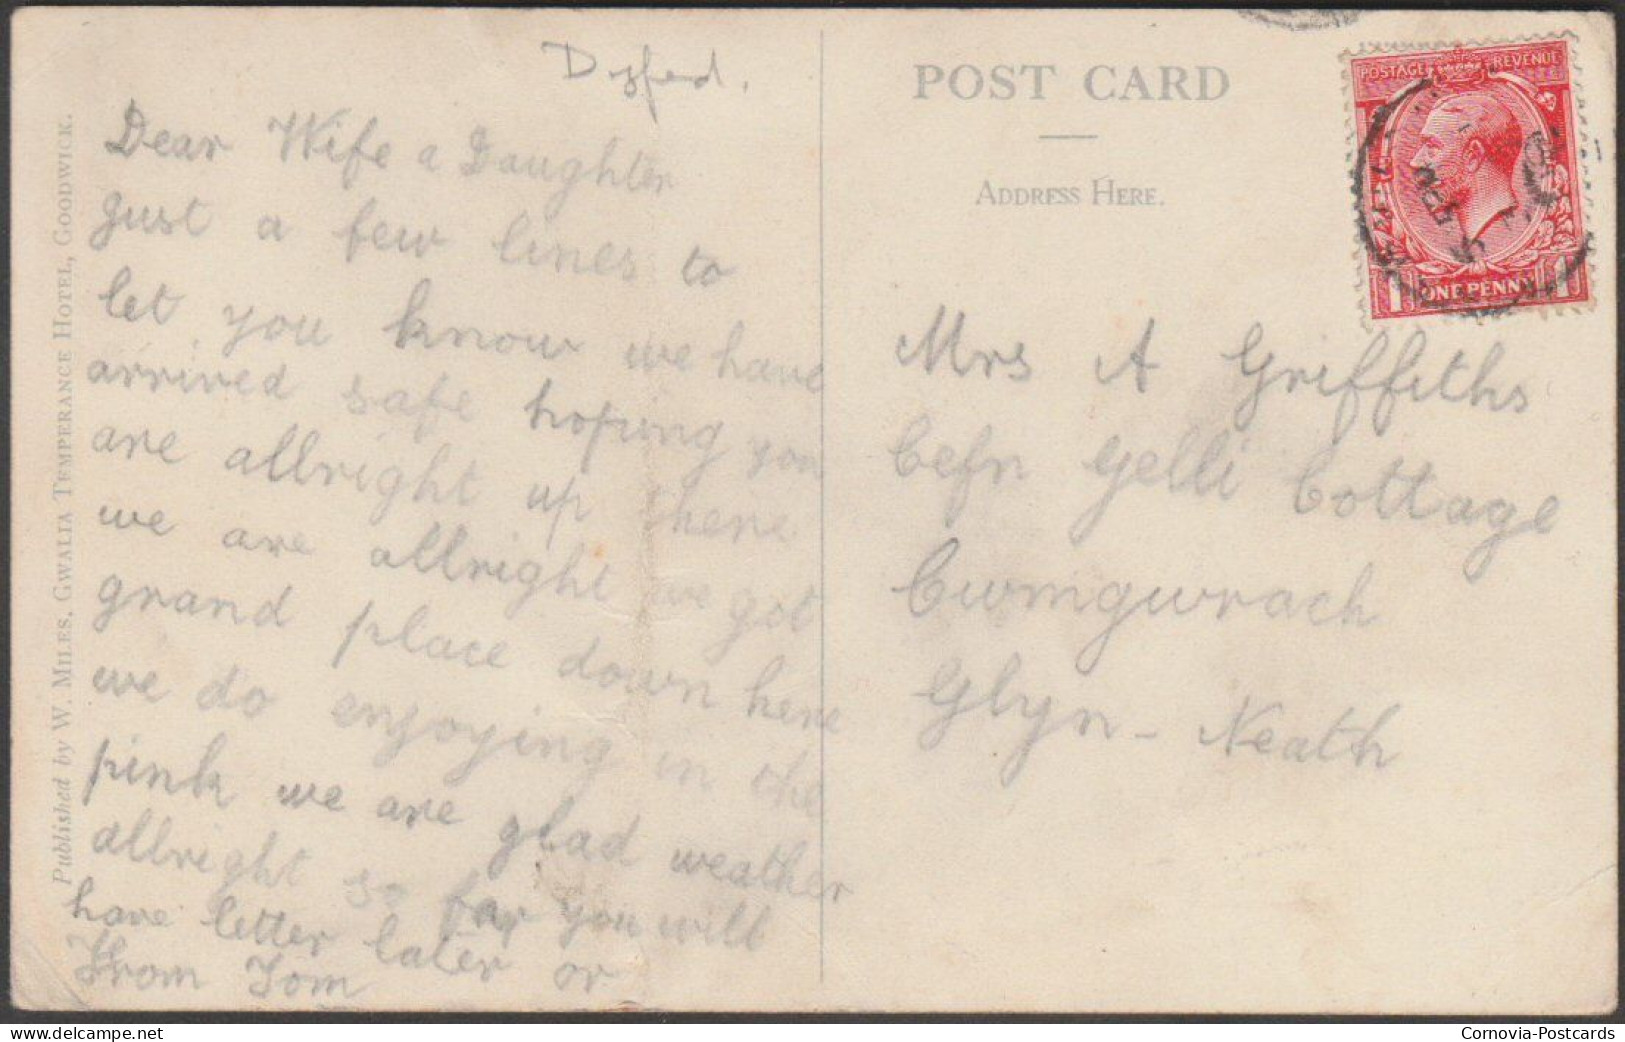 Dyfed.
Dear Wife a Daughter
Just a few lines to
let you know we have
arrived safe hoping you
are allright up there
we are allright we got
grand place down here
we do enjoying in the
pink we are glad weather
allright so far you will
have letter later or
From Tom
Published by W. Miles, Gwalia Temperance Hotel, Goodwick.
POST CARD
Address Here.
POSTAGE REVENUE
1 ONE PENNY 1
Mrs A Griffiths
Cefn Gelli Cottage
Cwmgwrach
Glyn - Neath
delcampe.net
Cornovia-Postcards